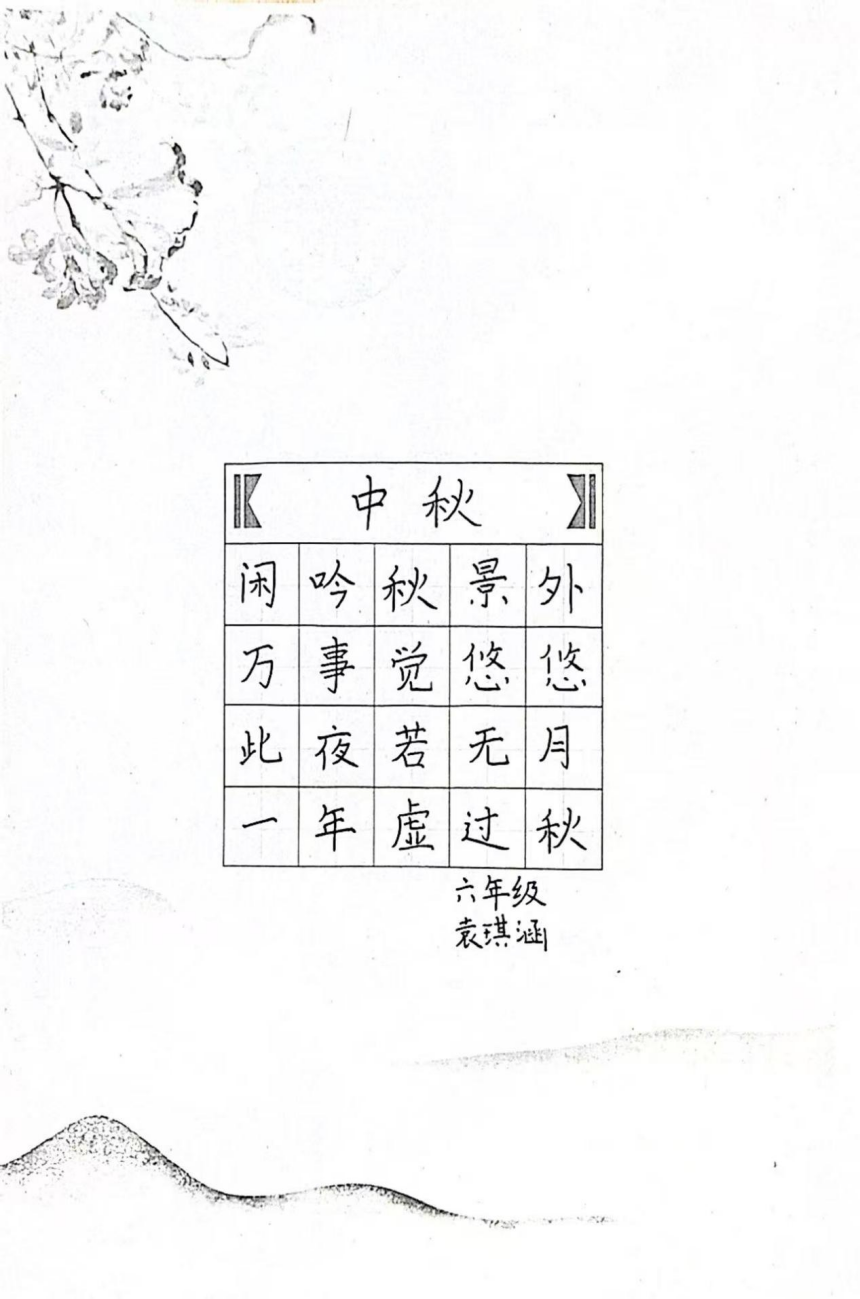 中秋
闲吟秋景外
万事觉悠悠
此夜若无月
一年虚过秋
六年级
袁琪涵